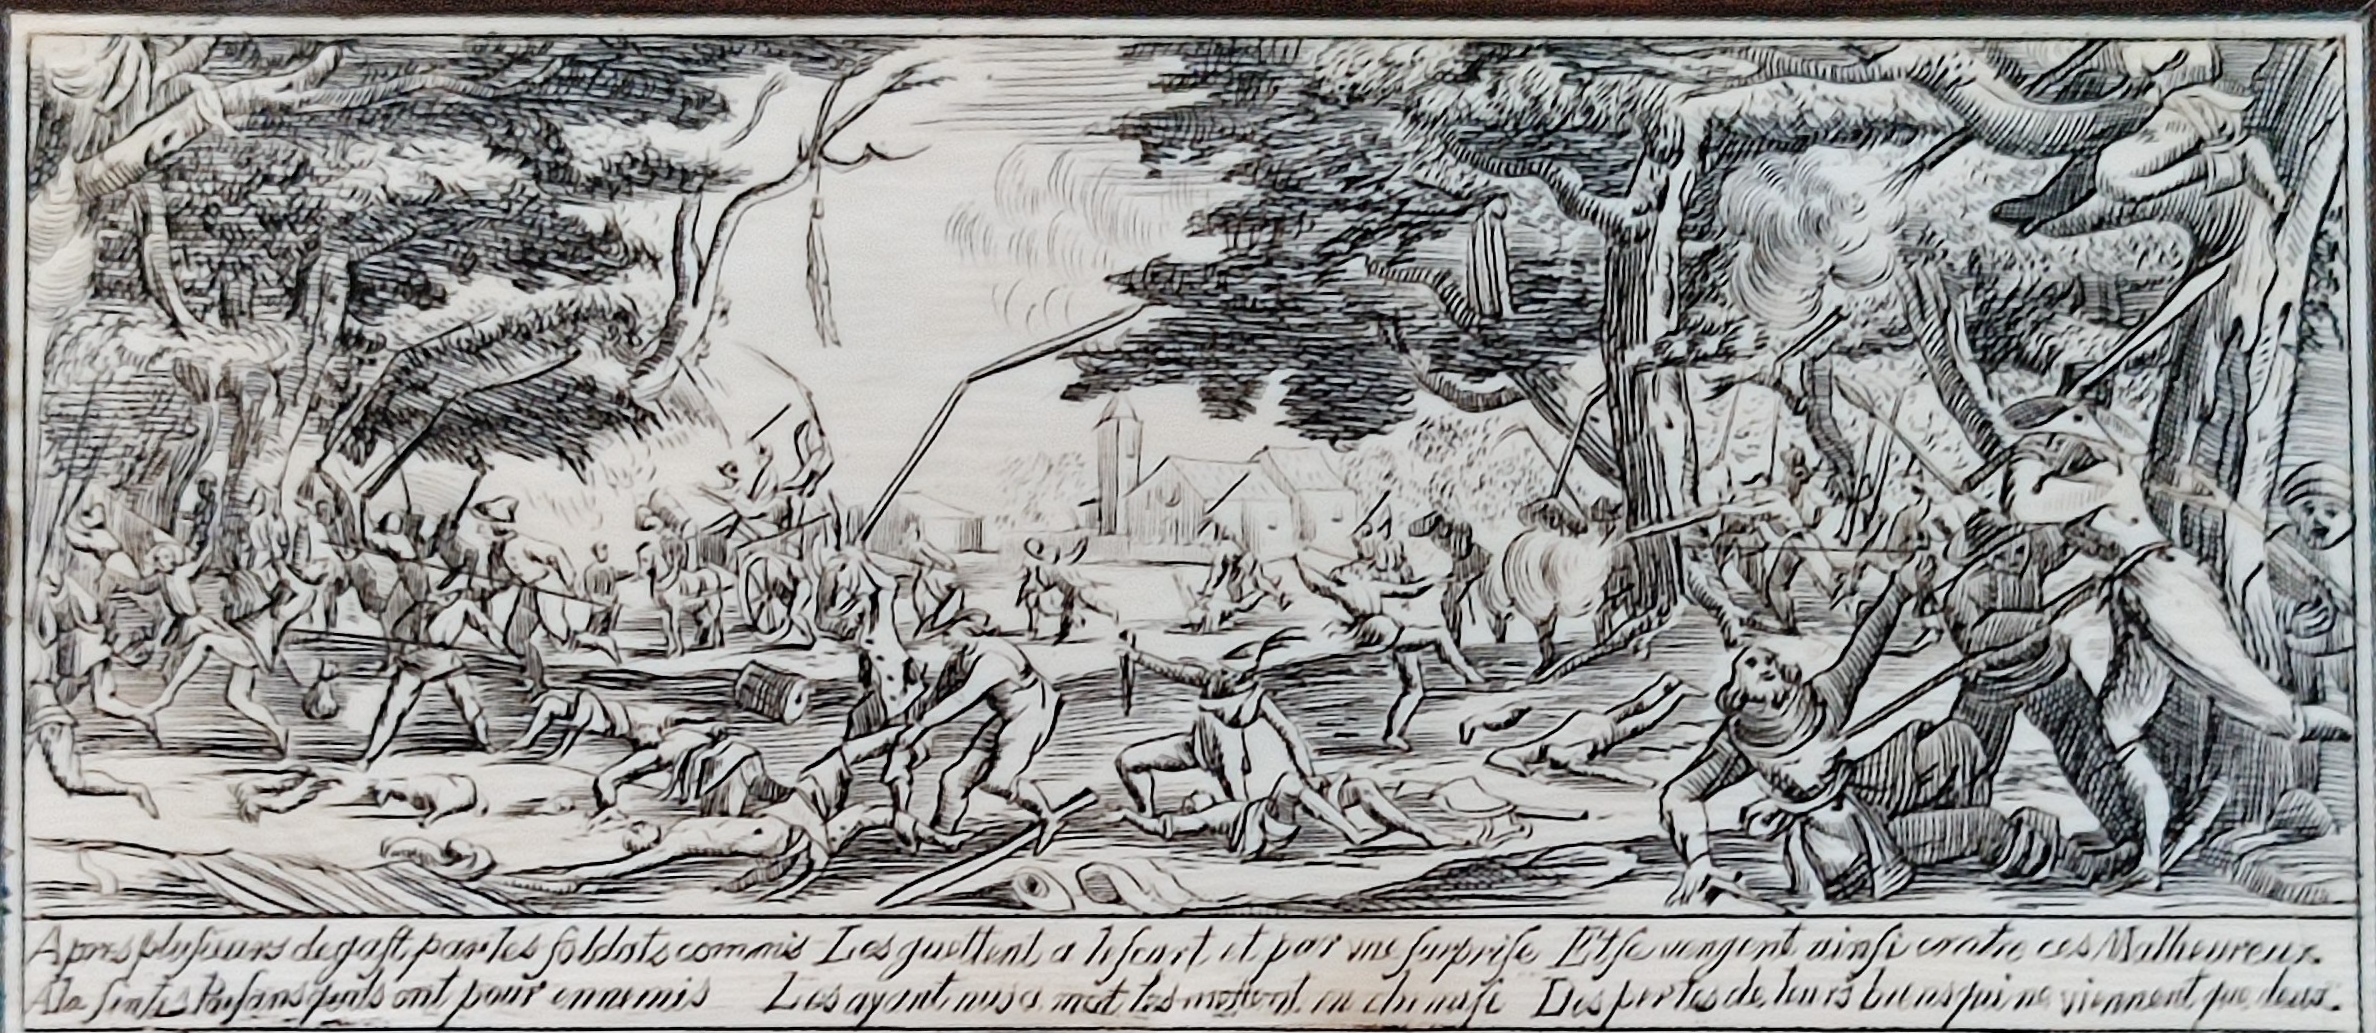 Apres pluſieurs degaſt par les ſoldats commis Les guettent a leſcart et par vne ſurpriſe Et ſe vengent ainſi contre ces Malheureux
A la fin les Paiſans quils ont pour ennemis Les ayant mis a mort les mettent en chemiſe Des pertes de leurs biens qui ne viennent que deux.